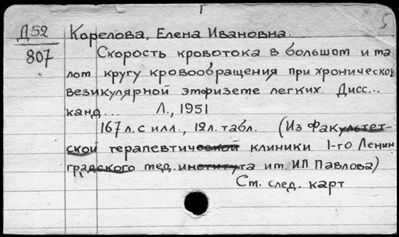 Д52 Карелова, Елена Ивановна
807 Скорость кровотока в большом и ма
лом кругу кровообращения при хроническо
везикулярной эмфиземе легких. Дисс...
канд... Л., 1951
167 л. с илл., 12 л. табл. (Из факультет-
ской терапевтической клиники 1-го Ленин
градского мед. института им. И.П. Павлова)
См. след. карт